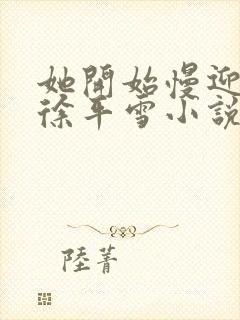 她開始慢迎
徐平雪小說
陸菁